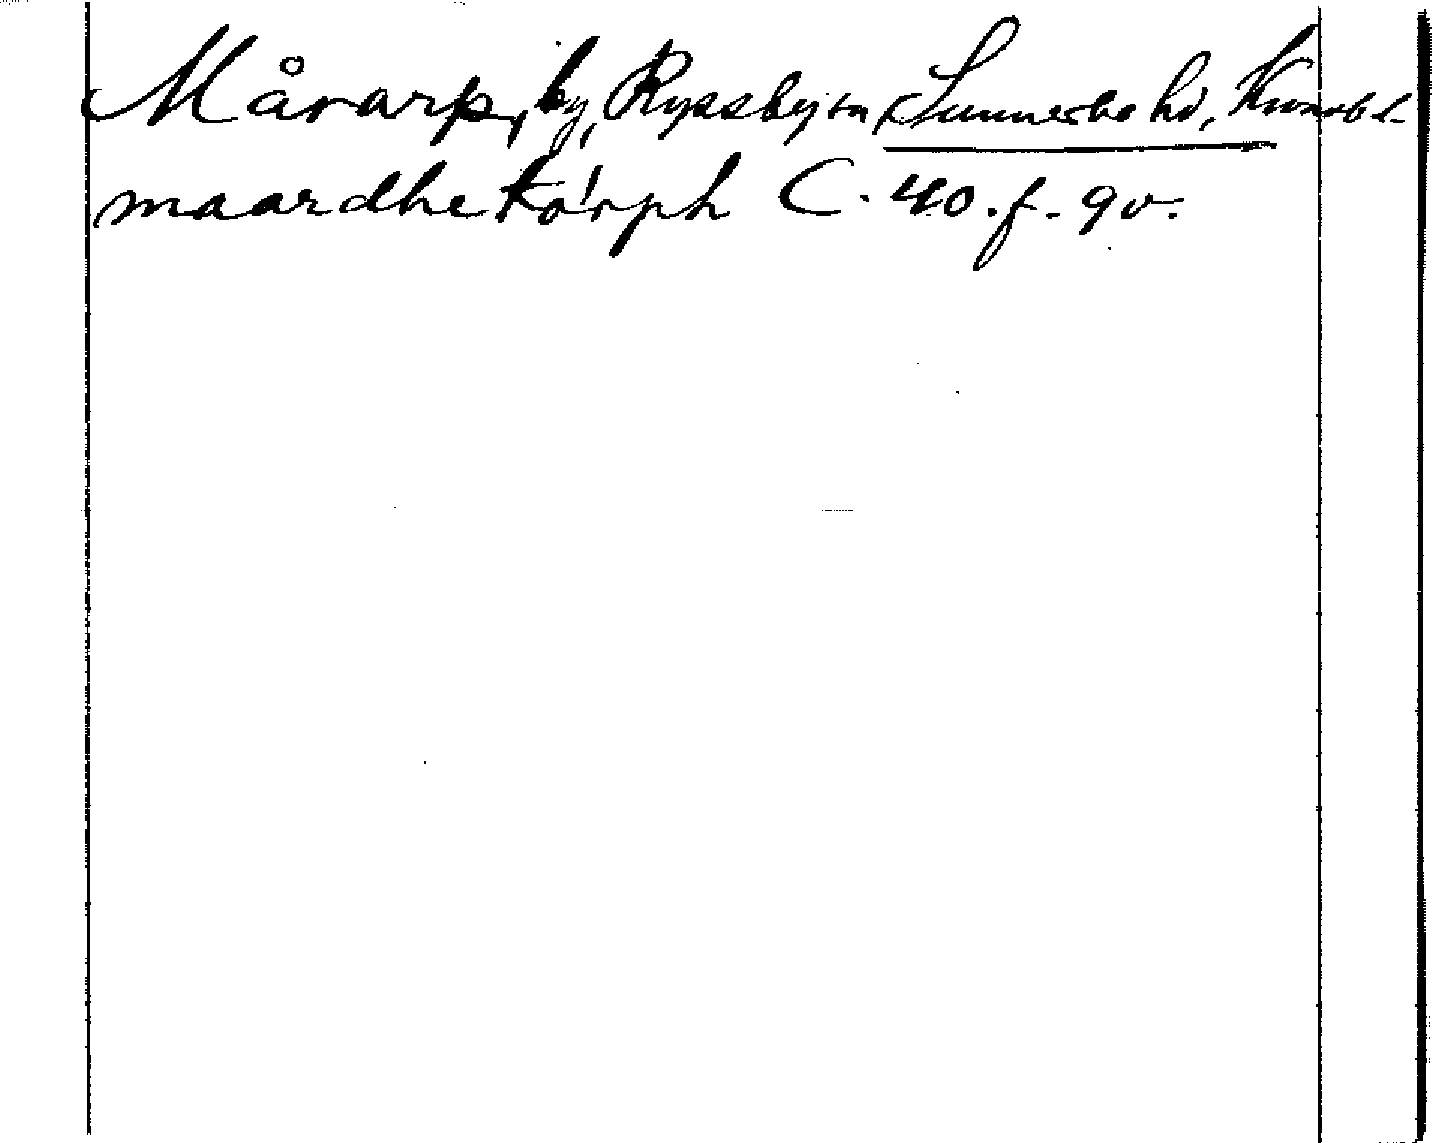 Mårarp, by, Ryssby sn, Sunnerbo hd, Kronob l.
maardhetorph C. 40. f. 9 v.